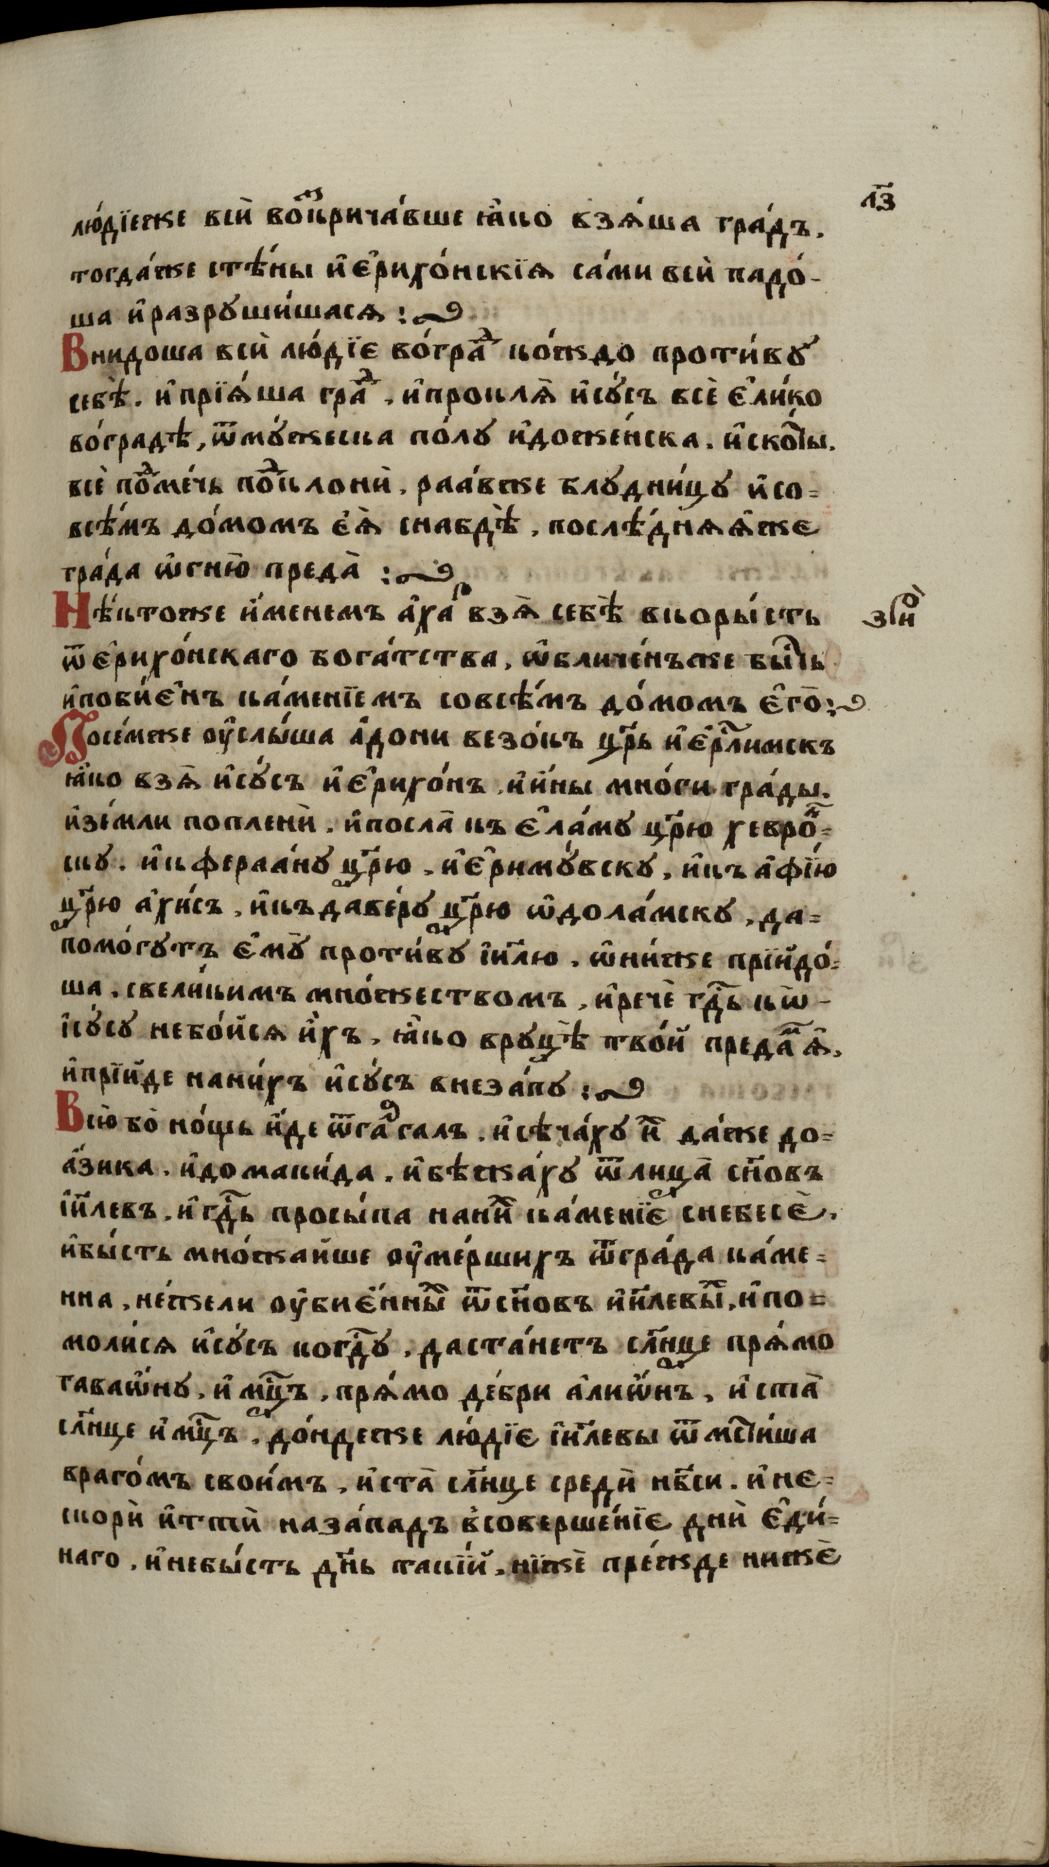 л҃з
лю́дїеже вси̑ во̑скрича́вше ꙗ҆́ко взѧ́ша гра́дъ.
тогда́же стѣ́ны и҆є҆рихо́нскїѧ са́ми вси̑ падо́-
ша и҆разруши́шасѧ :
Внидоша вси̑ лю́дїє во́граⷣ ко́ждо проти́вꙋ
себѣ̀. и҆прїѧ́ша граⷣ, и҆проклѧ̀ и҆сꙋ́съ всѐ є҆ли́ко
во́градѣ, ѿмꙋ́жеска по́лꙋ и҆доже́нска. и҆скоⷮы.
всѐ поⷣме́чь поⷣклони̑, раа́вже блꙋдни́цꙋ и҆со=
всѣ́мъ до́момъ є҆ѧ̀ снабдѣ̀, послѣ́днѧѧ҆же
гра́да ѻ҆гню̀ преда̀ :
Нѣ́ктоже и҆́менемъ а҆ха́ⷬ взѧ̀ себѣ̀ вкоры́сть
ѿє҆рихо́нскаго бога́тства, ѡ҆бличе́нъже быⷭ҇ть
и҆поби́є҆нъ ка́менїемъ совсѣ́мъ до́момъ є҆го̀ :
зрѝ ѻ҆
Посе́мже оу҆слы́ша а҆́дони везо́къ цр҃ь и҆є҆рⷭ҇лимскъ
ꙗ҆́ко взѧ̀ и҆сꙋ́съ и҆є҆рихо́нъ. и҆и҆́ны мно́ги гра́ды.
и҆зе́мли поплени̑. и҆посла̀ къ є҆ла́мꙋ цр҃ю хевроⷩ҇=
скꙋ. и҆к фераа́нꙋ цр҃ю. и҆є҆римꙋ́вскꙋ, и҆къ а҆фі́ю
цр҃ю а҆хи́съ, и҆къ даве́рꙋ цр҃ю ѡ҆дола́мскꙋ, да=
помо́гꙋтъ є҆мꙋ̀ проти́вꙋ і҆и҃лю. ѻ҆ни́же прїи̑до́=
ша. свели́кимъ мно́жествомъ, и҆речѐ гдⷭ҇ь кѡ-
і҆сꙋ́сꙋ небо́йсѧ и҆́хъ, ꙗ҆́ко врꙋцѣ̀ твои̑ преда́ⷨ ѧ҆̀,
и҆прїи̑де нани́хъ и҆сꙋ́съ внеза́пꙋ :
Всю̀ бо но́щь и҆́де ѿгаⷧ҇галъ. и҆сѣча́хꙋ и҆ⷯ да́же до=
а҆́зика. и҆домаки́да. и҆бѣжа́хꙋ ѿлица̀ сн҃овъ
і҆и҃левъ. и҆гдⷭ҇ь просы́па наниⷯ ка́менїє снебесѐ.
и҆бы́сть мно́жайше оу҆ме́ршихъ ѿгра́да каме=
нна, не́жели оу҆биє́нныⷯ ѿсн҃овъ и҆и҃левыⷯ, и҆по=
моли́сѧ и҆сꙋ́съ когдⷭ҇ꙋ, даста́нетъ сл҃нце прѧ́мо
гаваѡ́нꙋ, и҆мцⷭ҇ъ, прѧ́мо де́бри а҆лиѡ́нъ, и҆ста̀
сл҃нце и҆мцⷭ҇ъ. до́ндеже лю́дїє і҆и҃левы ѿмсⷮи́ша
враго́мъ свои́мъ, и҆ста̀ сл҃нце среди̑ нб҃си. и҆не=
скори̑ и҆тѝ наза́падъ в̾соверше́нїє дни̑ є҆ди́=
наго, и҆небы́сть дн҃ь таки́й. нижѐ пре́жде нижѐ